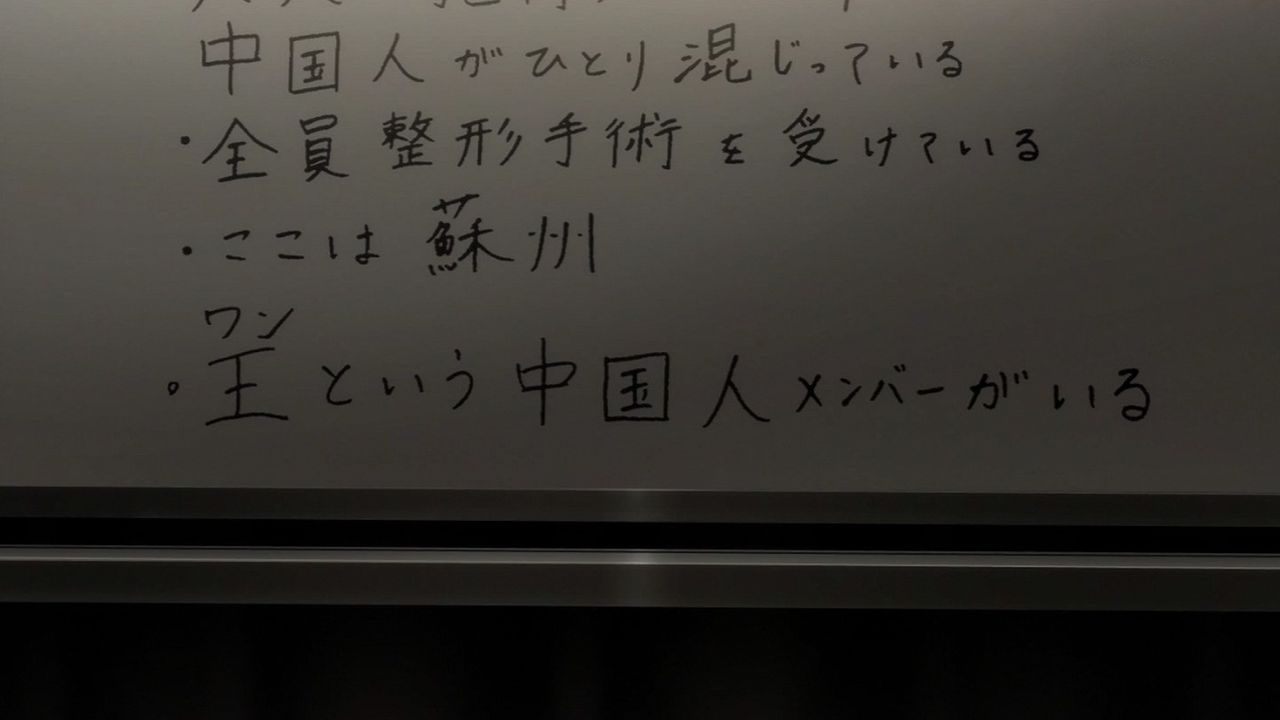 中国人がひとり混じっている
・全員整形手術を受けている
・ここは蘇州
ワン
・王という中国人メンバーがいる